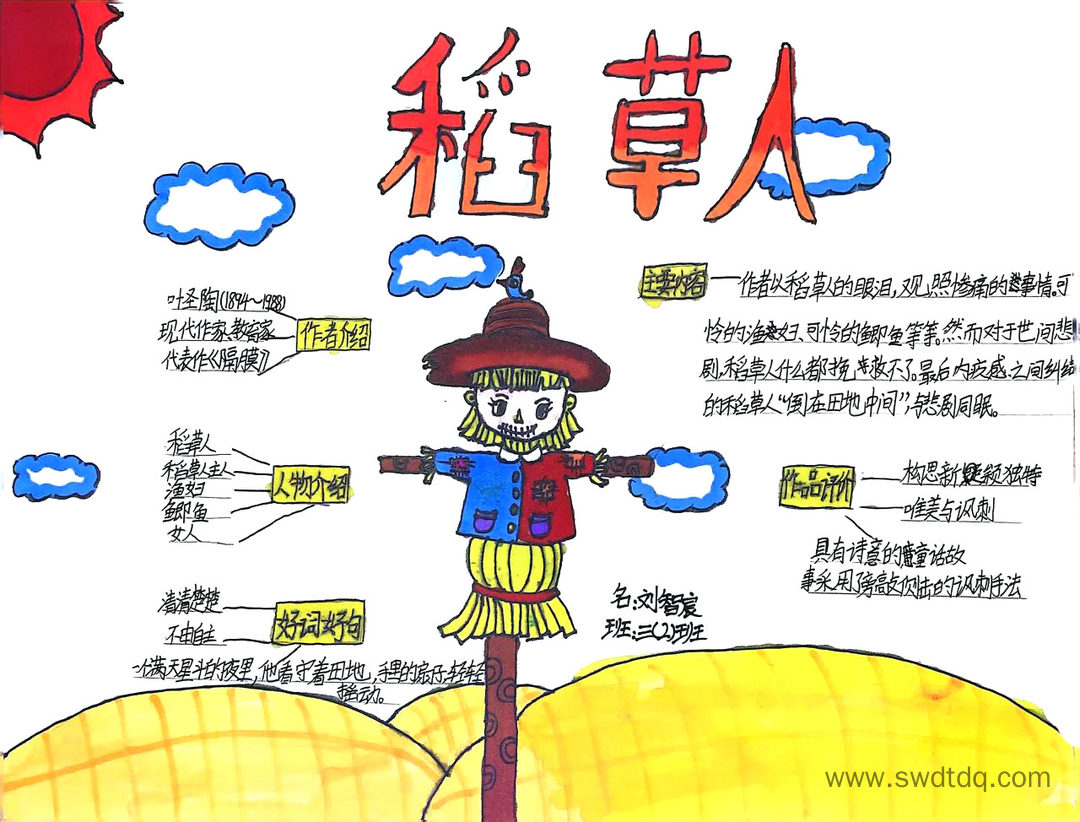 稻草人
叶圣陶(1894~1988)
现代作家、教育家
代表作《隔膜》
作者介绍
主要内容
作者以稻草人的眼泪,观照惨痛的事情。可
怜的渔妇、可怜的鲫鱼等等。然而对于世间悲
剧,稻草人什么都挽救不了。最后内疚感之间纠结
的稻草人“倒在田地中间”,与悲剧同眠。
稻草人
稻草人主人
渔妇
鲫鱼
女人
人物介绍
作品评价
构思新颖独特
唯美与讽刺
具有诗意的童话故
事采用了旁敲侧击的讽刺手法
清清楚楚
不由自主
好词好句
一个满天星斗的夜里,他看守着田地,手里的扇子轻轻
摇动。
名:刘智宸
班:三(2)班
www.swdtdq.com